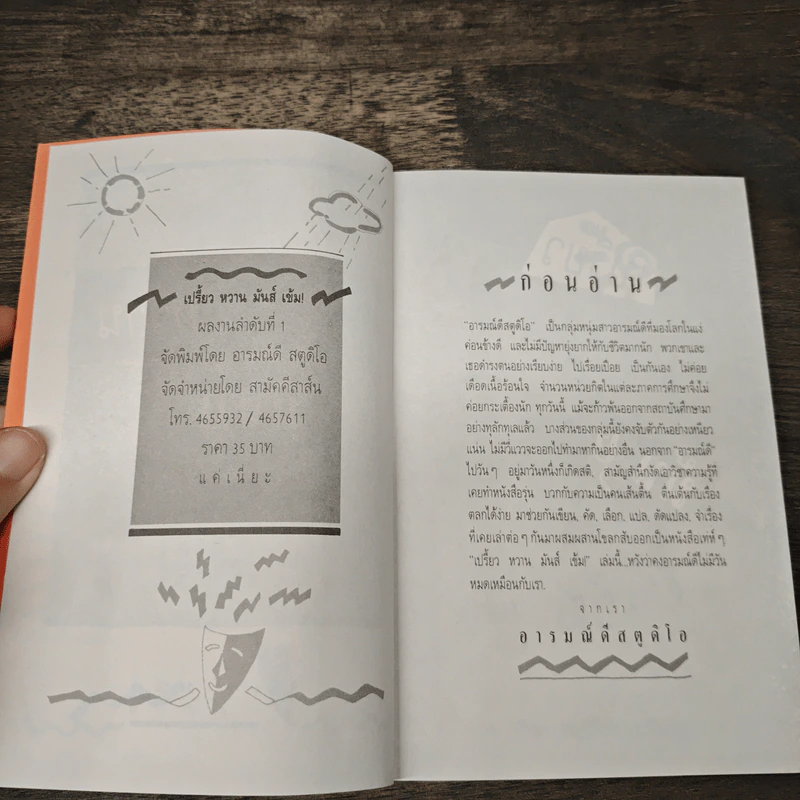 เปรี้ยว หวาน มันส์ เข้ม!
ผลงานลำดับที่ 1
จัดพิมพ์โดย อารมณ์ดี สตูดิโอ
จัดจำหน่ายโดย สามัคคีสาส์น
โทร. 4655932 / 4657611
ราคา 35 บาท
แค่เนี่ยะ
ก่อนอ่าน
"อารมณ์ดีสตูดิโอ" เป็นกลุ่มหนุ่มสาวอารมณ์ดีที่มองโลกในแง่
ค่อนข้างดี และไม่มีปัญหายุ่งยากให้กับชีวิตมากนัก พวกเขาและ
เธอดำรงตนอย่างเรียบง่าย ไปเรื่อยเปื่อย เป็นกันเอง ไม่ค่อย
เดือดเนื้อร้อนใจ จำนวนหน่วยกิตในแต่ละภาคการศึกษาจึงไม่
ค่อยกระเตื้องนัก ทุกวันนี้ แม้จะก้าวพ้นออกจากสถาบันศึกษามา
อย่างทุลักทุเลแล้ว บางส่วนของกลุ่มนี้ยังคงจับตัวกันอย่างเหนียว
แน่น ไม่มีวี่แววจะออกไปทำมาหากินอย่างอื่น นอกจาก "อารมณ์ดี"
ไปวันๆ อยู่มาวันหนึ่งก็เกิดสติ, สามัญสำนึกงัดเอาวิชาความรู้ที่
เคยทำหนังสือรุ่น บวกกับความเป็นคนเส้นตื้น ตื่นเต้นกับเรื่อง
ตลกได้ง่าย มาช่วยกันเขียน, คัด, เลือก, แปล, ดัดแปลง, จำเรื่อง
ที่เคยเล่าต่อๆ กันมาผสมผสานไขลกสับออกเป็นหนังสือเท่ห์ๆ
"เปรี้ยว หวาน มันส์ เข้ม!" เล่มนี้...หวังว่าคงอารมณ์ดีไม่มีวัน
หมดเหมือนกับเรา.
จากเรา
อารมณ์ดีสตูดิโอ